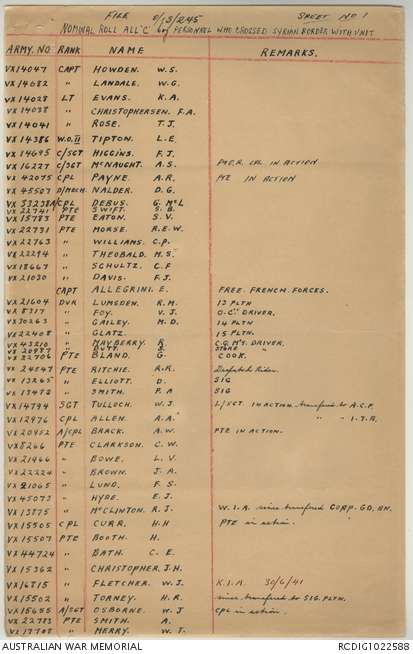 FILE 5/13/245 SHEET NO 1
NOMINAL ROLL ALL "C" Coy PERSONNEL WHO CROSSED SYRIAN BORDER WITH UNIT
ARMY. NO. RANK NAME REMARKS.
VX14047 CAPT HOWDEN. W.S.
VX14682 " LANDALE. W.G.
VX14028 LT EVANS. K.A.
VX14038 " CHRISTOPHERSEN. F.A.
VX14041 " ROSE. T.J.
VX14386 W.O.II TIPTON. L.E.
VX14695 C/SGT HIGGINS. F.J.
VX16277 C/SGT McNAUGHT. A.S. CPL IN ACTION
VX42075 CPL PAYNE. A.R. PTE IN ACTION
VX45507 D/MECH. NALDER. D.G.
VX33238 A/CPL DEBUS. G. McL
VX22741 PTE SWIFT. S.B.
VX15783 PTE EATON. S.V.
VX22731 PTE MORSE. R.E.W.
VX22763 " WILLIAMS. C.P.
VX22294 " THEOBALD. M.S.
VX18667 " SCHULTZ. C.F
VX21030 " DAVIS. F.J.
CAPT ALLEGRINI. E. FREE FRENCH FORCES.
VX21604 DVR LUMSDEN. R.M. 13 PLTN
VX8317 " FOY. V.J. O.C'S DRIVER.
VX30263 " GAILEY. M.D. 14 PLTN
VX22408 " GLATZ. 15 PLTN.
VX43210 " MAYBERRY. R. C.Q.M'S. DRIVER.
" BUTT. STORE "
VX22704 PTE BLAND. G. COOK.
VX24547 PTE RITCHIE. R.R. Despatch Rider.
VX13265 " ELLIOTT. D. SIG
VX13472 " SMITH. F.A SIG
VX14794 SGT TULLOCH. W.J. L/SGT. IN ACTION transfered to A.C.F.
VX12976 CPL ALLEN. A.A. " " I.T.B.
VX20952 A/CPL BRACK. A.W. PTE IN ACTION.
VX5266 PTE CLARKSON. C.W.
VX21466 " BOWE. L.V.
VX22224 " BROWN. J.A.
VX21065 " LUND. F.S.
VX45073 " HYDE. E.J.
VX13875 " McCLINTON. A.J. W.I.A. since transfered CORP. GD. BN.
VX15505 CPL CURR. H.H PTE in action.
VX15507 PTE BOOTH. H.
VX44724 " BATH. C.E.
VX15362 " CHRISTOPHER. J.H.
VX16715 " FLETCHER. W.J. K.I.A. 30/6/41
VX15502 " TORNEY. H.R. since transfered to SIG. PLTN.
VX15655 A/SGT OSBORNE. W.J CPL in action.
VX22783 PTE SMITH. A.
VX17708 " MERRY. W.T.
AUSTRALIAN WAR MEMORIAL RCDIG1022588